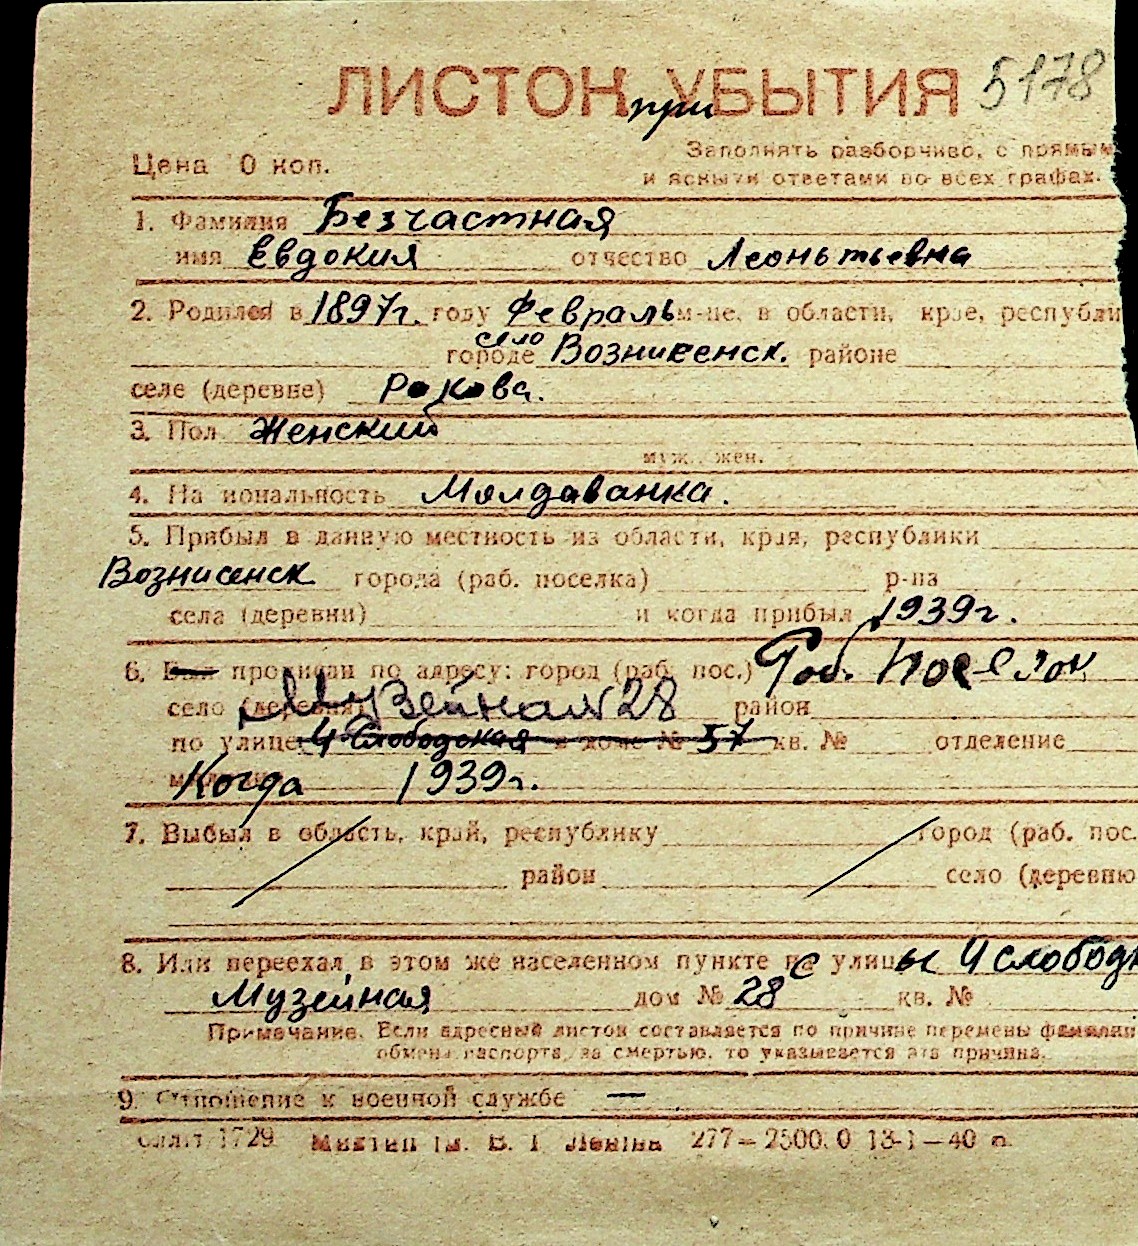 ЛИСТОК при УБЫТИЯ 5178
Заполнять разборчиво, с прямым
Цена 0 коп.
и ясными ответами во всех графах.
1. Фамилия Безчастная
имя Евдокия отчество Леоньтьевна
2. Родился в 1897г. году Февраль м-це, в области, крае, республи
село
городе Вознисенск. районе
селе (деревне)
3. Пол Женский
муж., жен.
4. На иональность Молдаванка.
5. Прибыл в данную местность из области, края, республики
Вознисенск города (раб. поселка) р-на
села (деревни) и когда прибыл 1939г.
6. Был прописан по адресу: город (раб. пос.) Раб. Поселок
село (деревня) Музейная 28 район
по улице 4 Слободская в доме № 57 кв. № отделение
Когда 1939г.
7. Выбыл в область, край, республику город (раб. пос.
район село (деревню
8. Или переехал в этом же населенном пункте с улицы 4 слободк
Музейная дом № 28 кв. №
Примечание. Если адресный листок составляется по причине перемены фамилии
обмена паспорта, за смертью, то указывается эта причина.
9. Отношение к военной службе —
1729 В. І. Леніна 277—2500.0 13-1—40 п.